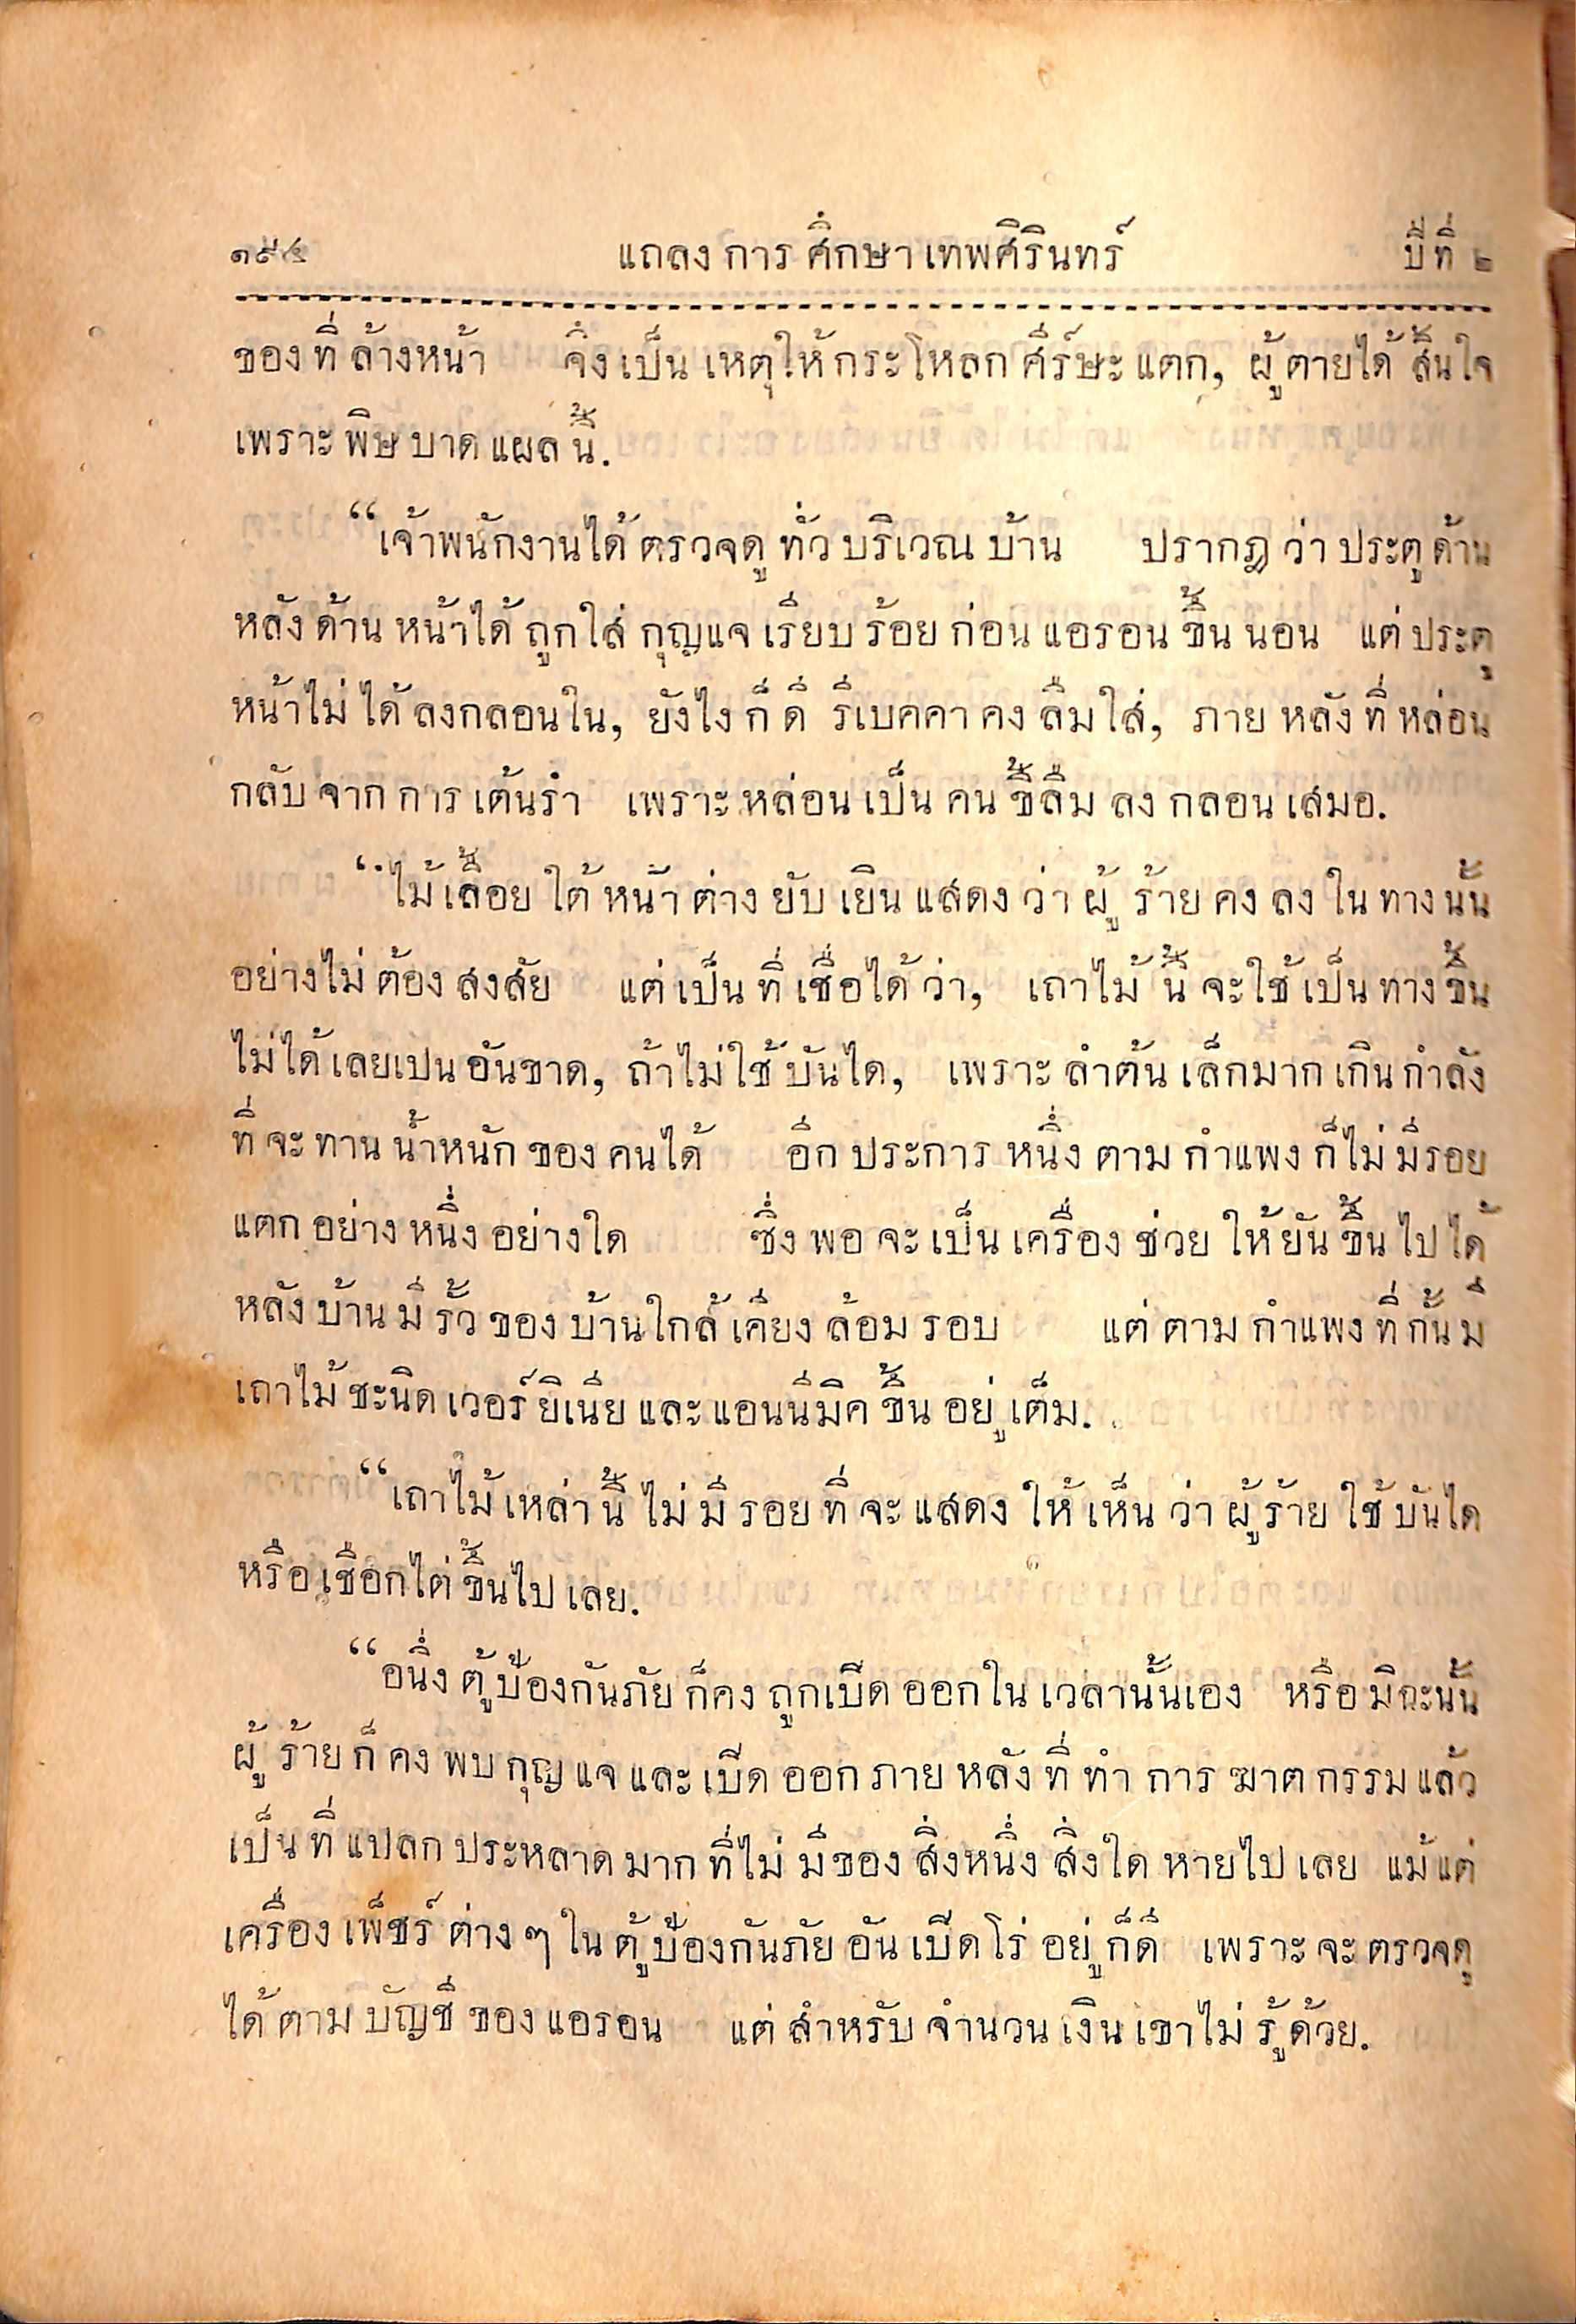 แถลงการศึกษาเทพศิรินทร์ ปีที่ ๒
ของที่ล้างหน้า จึ่งเป็นเหตุให้กระโหลกศีร์ษะแตก, ผู้ตายได้สิ้นใจ
เพราะพิษบาดแผลนี้.
“เจ้าพนักงานได้ตรวจดูทั่วบริเวณบ้าน ปรากฎว่าประตูด้าน
หลังด้านหน้าได้ถูกใส่กุญแจเรียบร้อยก่อนแอรอนขึ้นนอน แต่ประตู
หน้าไม่ได้ลงกลอนใน, ยังไงก็ดี รีเบคคาคงลืมใส่, ภายหลังที่หล่อน
กลับจากการเต้นรำ เพราะหล่อนเป็นคนขี้ลืมลงกลอนเสมอ.
“ไม้เลื้อยใต้หน้าต่างยับเยินแสดงว่าผู้ร้ายคงลงในทางนั้น
อย่างไม่ต้องสงสัย แต่เป็นที่เชื่อได้ว่า, เถาไม้นี้จะใช้เป็นทางขึ้น
ไม่ได้เลยเปนอันขาด, ถ้าไม่ใช้บันได, เพราะลำต้นเล็กมากเกินกำลัง
ที่จะทานน้ำหนักของคนได้ อีกประการหนึ่งตามกำแพงก็ไม่มีรอย
แตกอย่างหนึ่งอย่างใด ซึ่งพอจะเป็นเครื่องช่วยให้ยันขึ้นไปได้
หลังบ้านมีรั้วของบ้านใกล้เคียงล้อมรอบ แต่ตามกำแพงที่กั้นมี
เถาไม้ชะนิดเวอร์ยิเนียและแอนนีมิคขึ้นอยู่เต็ม.
“เถาไม้เหล่านี้ไม่มีรอยที่จะแสดงให้เห็นว่าผู้ร้ายใช้บันได
หรือเชือกไต่ขึ้นไปเลย.
“อนึ่งตู้ป้องกันภัยก็คงถูกเปิดออกในเวลานั้นเอง หรือมิฉะนั้น
ผู้ร้ายก็คงพบกุญแจและเปิดออกภายหลังที่ทำการฆาตกรรมแล้ว
เป็นที่แปลกประหลาดมากที่ไม่มีของสิ่งหนึ่งสิ่งใดหายไปเลย แม้แต่
เครื่องเพ็ชร์ต่างๆในตู้ป้องกันภัยอันเปิดโร่อยู่ก็ดี เพราะจะตรวจดู
ได้ตามบัญชีของแอรอน แต่สำหรับจำนวนเงินเขาไม่รู้ด้วย.